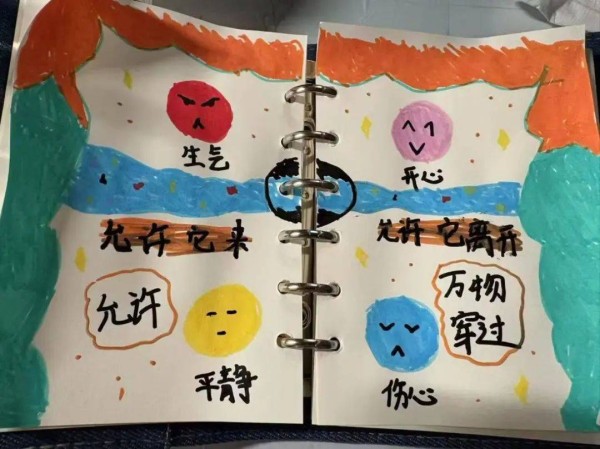 生气
允许它来
允许
平静
开心
允许它离开
万物
穿过
伤心